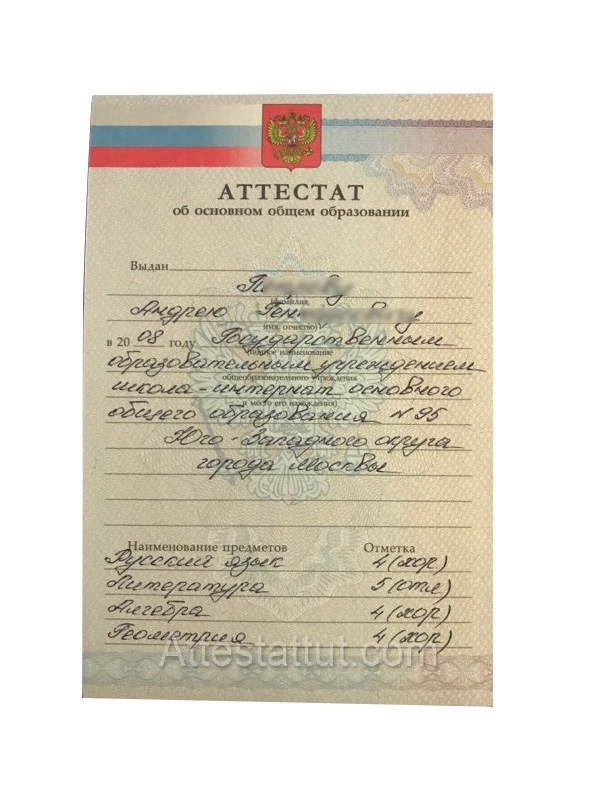 АТТЕСТАТ
об основном общем образовании
Выдан
(фамилия,
Андрею
имя, отчество)
в 2008 году Государственным
(полное наименование
образовательным учреждением
общеобразовательного учреждения
школа-интернат основного
и место его нахождения)
общего образования №95
Юго-Западного округа
города Москвы
Наименование предметов Отметка
Русский язык 4(хор)
Литература 5(отл)
Алгебра 4(хор)
Геометрия 4(хор)
Attestattut.com